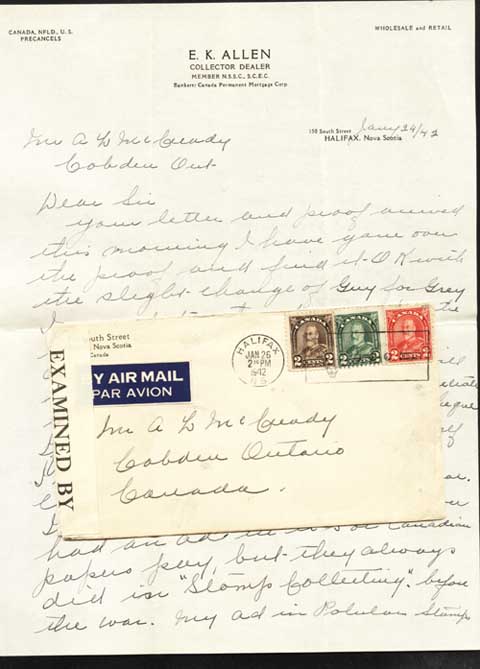 CANADA, NFLD., U.S.
PRECANCELS
WHOLESALE and RETAIL
E. K. ALLEN
COLLECTOR DEALER
MEMBER N.S.S.C., S.C.E.C.
Bankers: Canada Permanent Mortgage Corp
150 South Street Jany 24/42
HALIFAX, Nova Scotia
Mr A L McCready
Cobden Ont
Dear Sir
your letter and proof arrived
this morning I have gone over
the proof and find it O K with
the slight change of Guy for Grey
the
South Street
Nova Scotia
Canada
BY AIR MAIL
PAR AVION
EXAMINED BY
HALIFAX
JAN 26
2 PM
1942
N.S.
CANADA
2 CENTS 2
CANADA
2 CENTS 2
CANADA
2 CENTS 2
Mr A L McCready
Cobden Ontario
Canada.
had an ad in Canadian
papers pay, but they always
did in "Stamp Collecting". before
the war. My ad in Popular Stamps